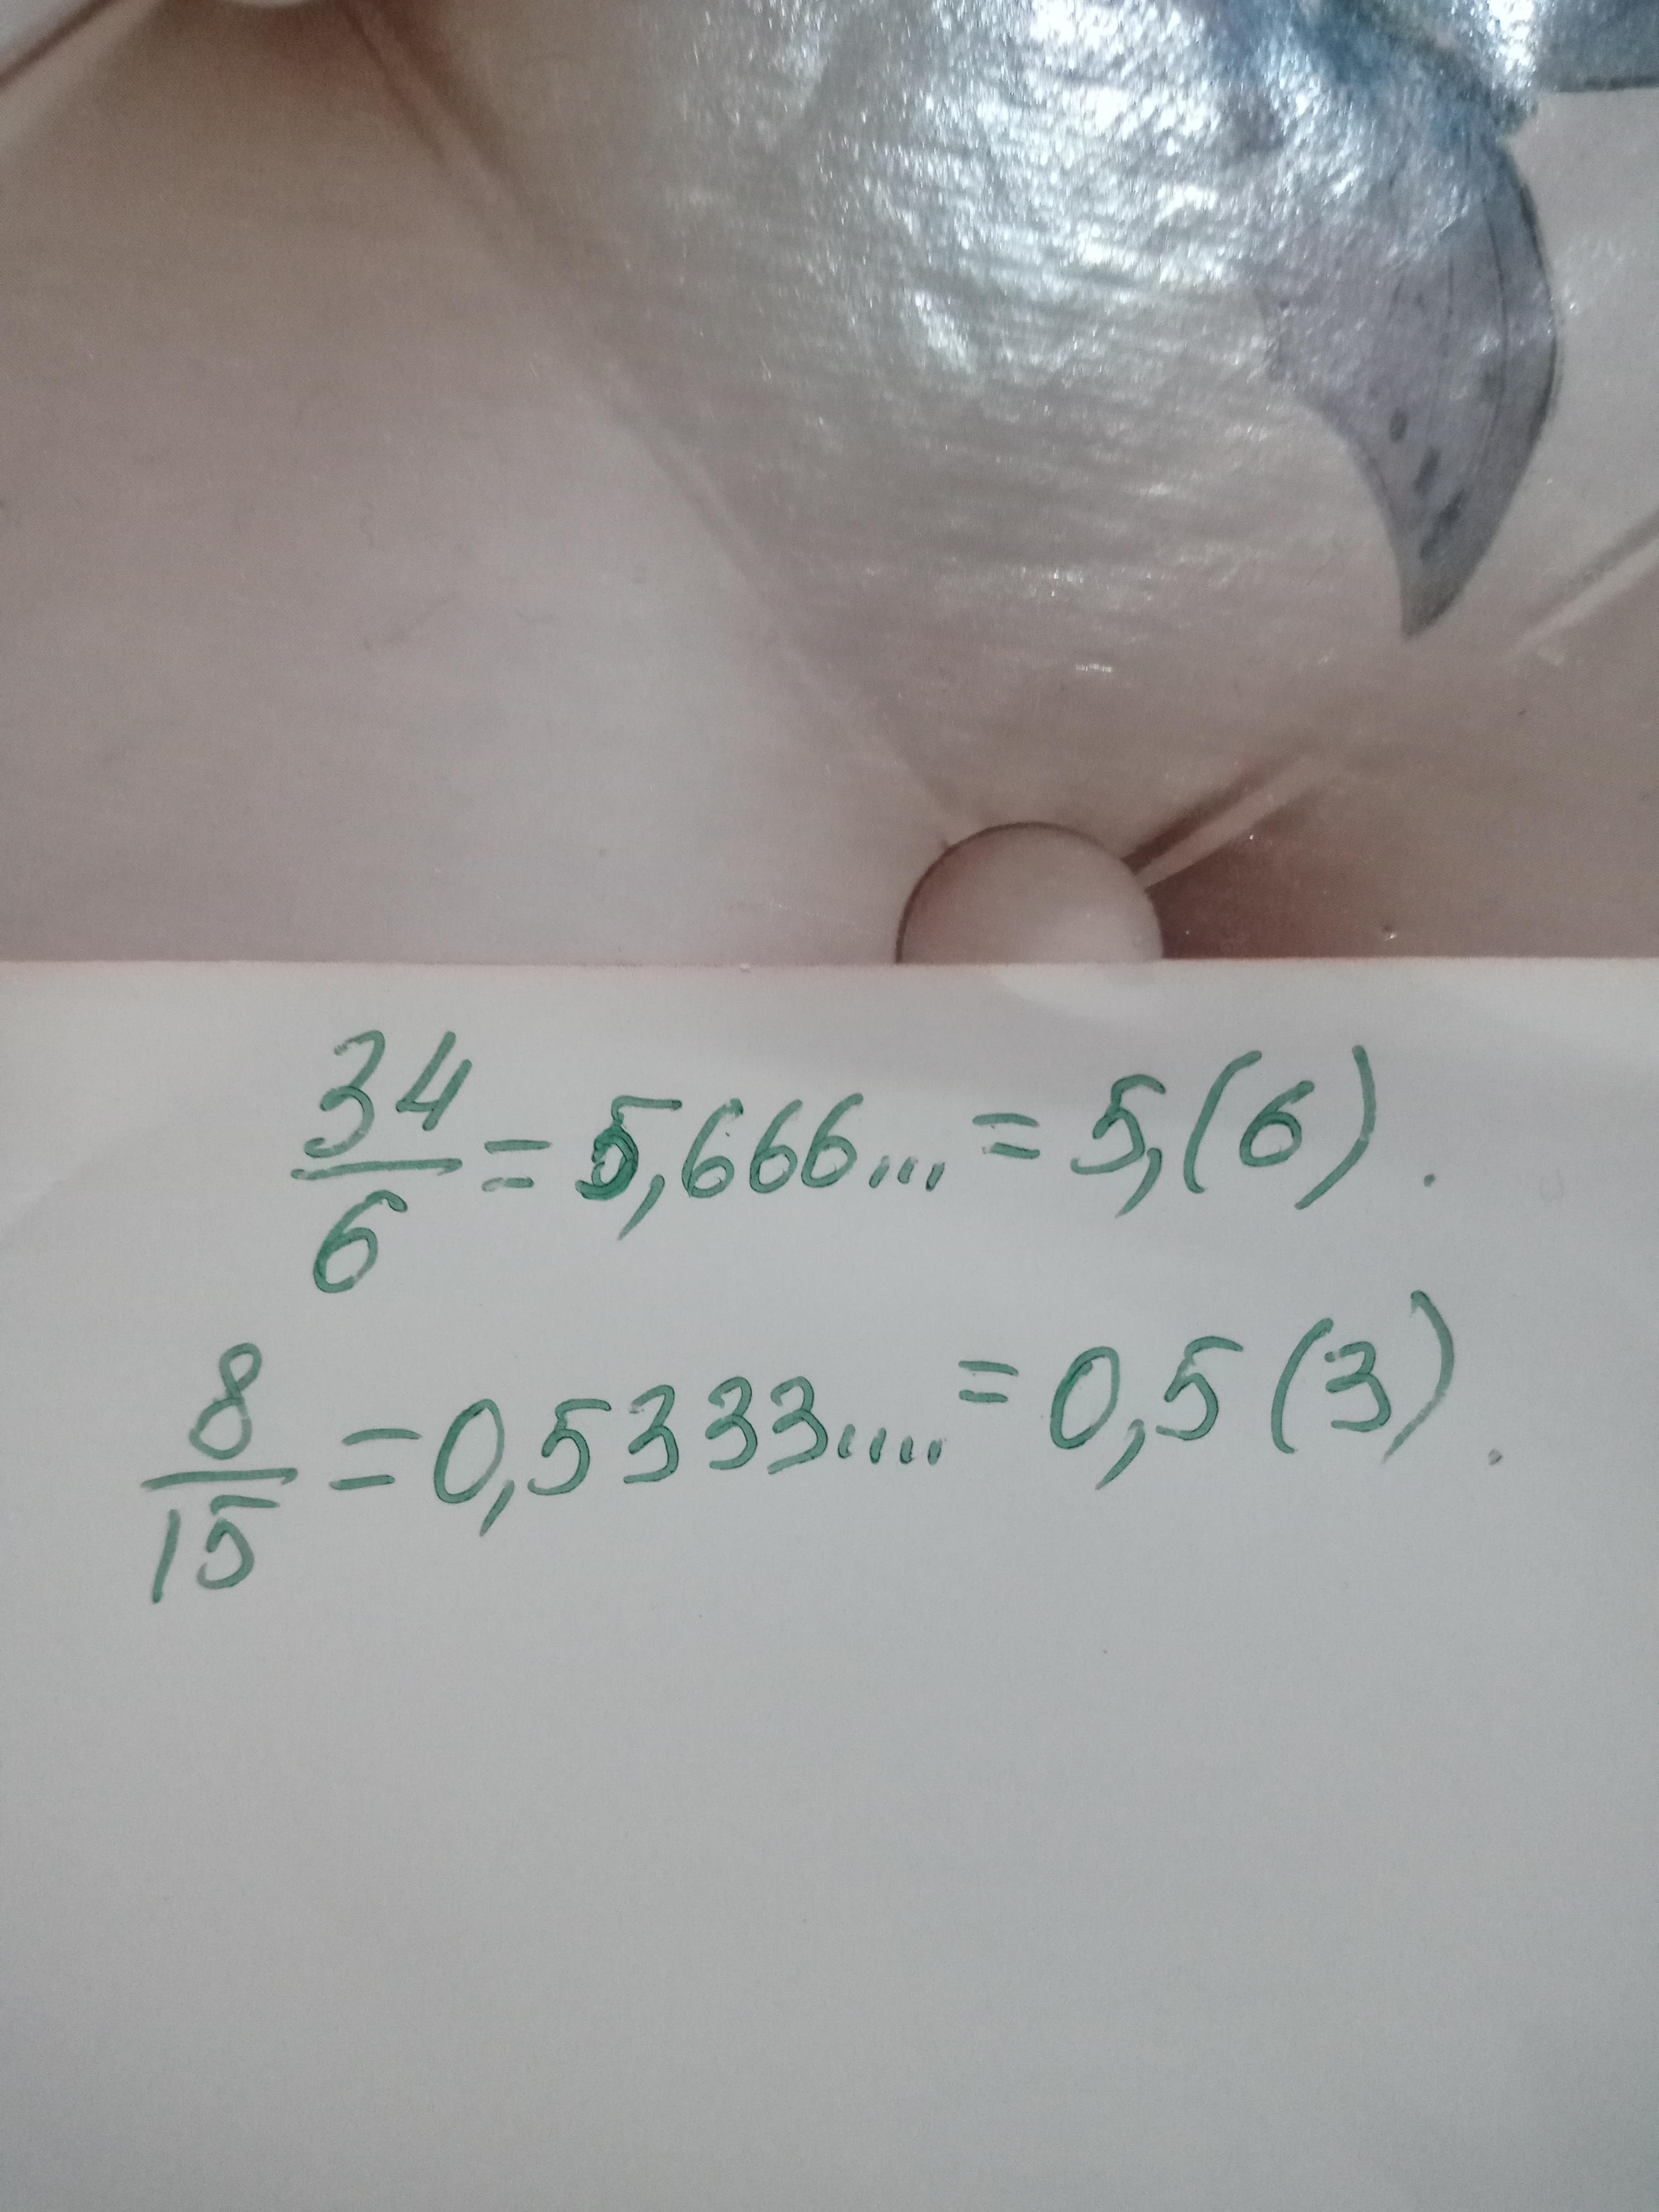 34/6 = 5,666... = 5,(6).
8/15 = 0,5333.... = 0,5(3).